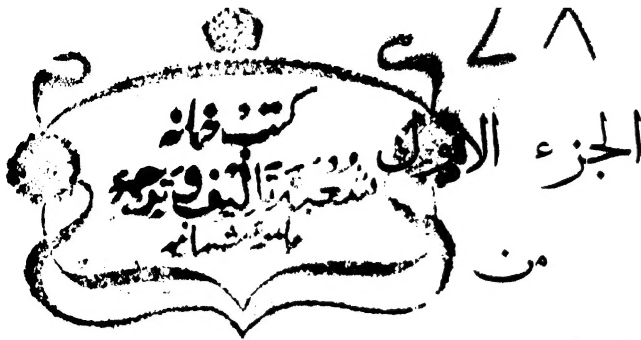 ٧٨
الجزء الاول
من
كتب خانه
شعبة تاليف و ترجمه
جامعه عثمانيه